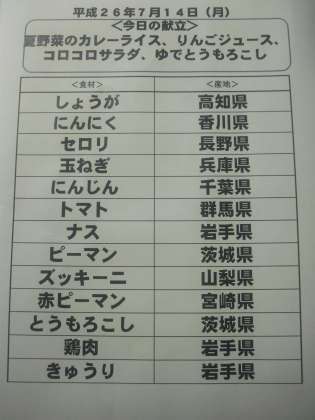 平成26年7月14日(月)
＜今日の献立＞
夏野菜のカレーライス、りんごジュース、
コロコロサラダ、ゆでとうもろこし
＜食材＞ ＜産地＞
しょうが 高知県
にんにく 香川県
セロリ 長野県
玉ねぎ 兵庫県
にんじん 千葉県
トマト 群馬県
ナス 岩手県
ピーマン 茨城県
ズッキーニ 山梨県
赤ピーマン 宮崎県
とうもろこし 茨城県
鶏肉 岩手県
きゅうり 岩手県